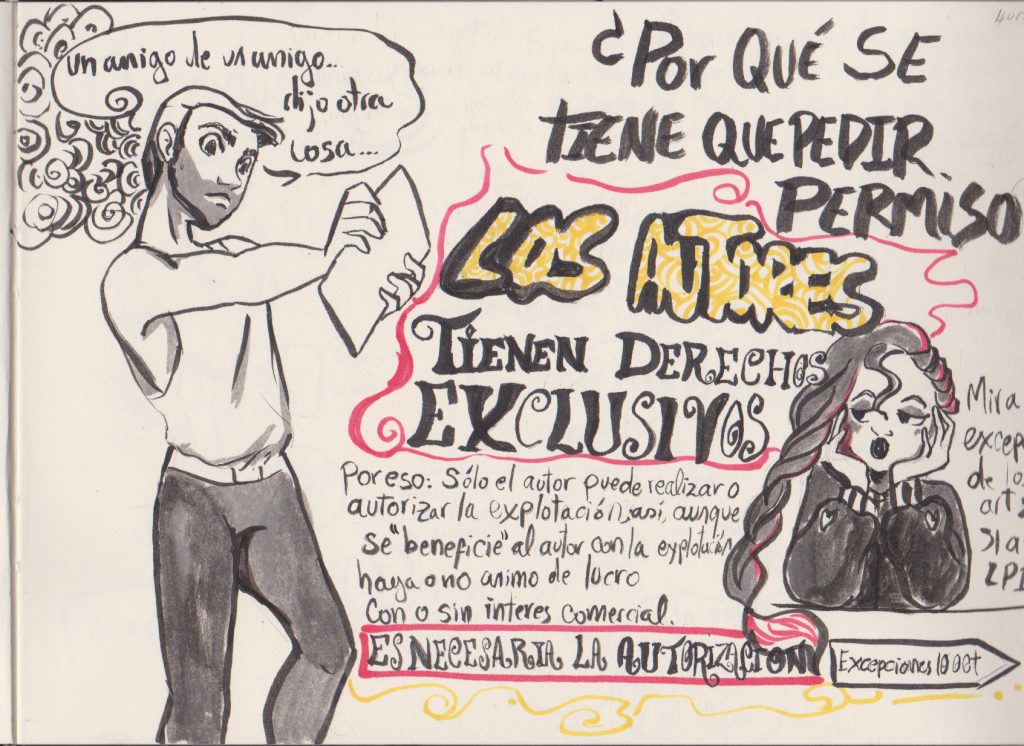 un amigo de un amigo...
dijo otra
cosa...
¿Por QUÉ SE
TIENE QUE PEDIR
PERMISO
LOS AUTORES
TIENEN DERECHOS
EXCLUSIVOS
Por eso: Sólo el autor puede realizar o
autorizar la explotación, así, aunque
se "beneficie" al autor con la explotación
haya o no animo de lucro
Con o sin interes comercial.
ES NECESARIA LA AUTORIZACION
Mira
excep
de lo
art
31 a
LPI
Excepciones 10 oct